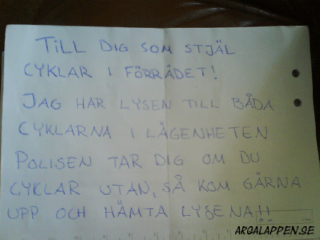 TILL DIG SOM STJÄL
CYKLAR I FÖRRÅDET!
JAG HAR LYSEN TILL BÅDA
CYKLARNA I LÄGENHETEN
POLISEN TAR DIG OM DU
CYKLAR UTAN, SÅ KOM GÄRNA
UPP OCH HÄMTA LYSENA!!
ARGALAPPEN.SE